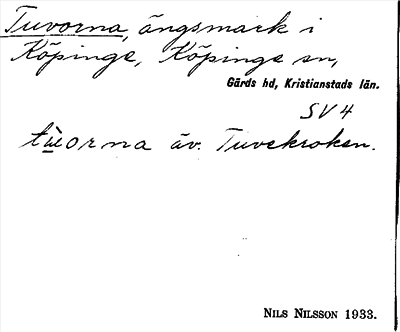 Tuvorna, ängsmark i
Köpinge, Köpinge sn,
Gärds hd, Kristianstads län.
SV4
tùorna äv. Tuvekroken.
NILS NILSSON 1933.